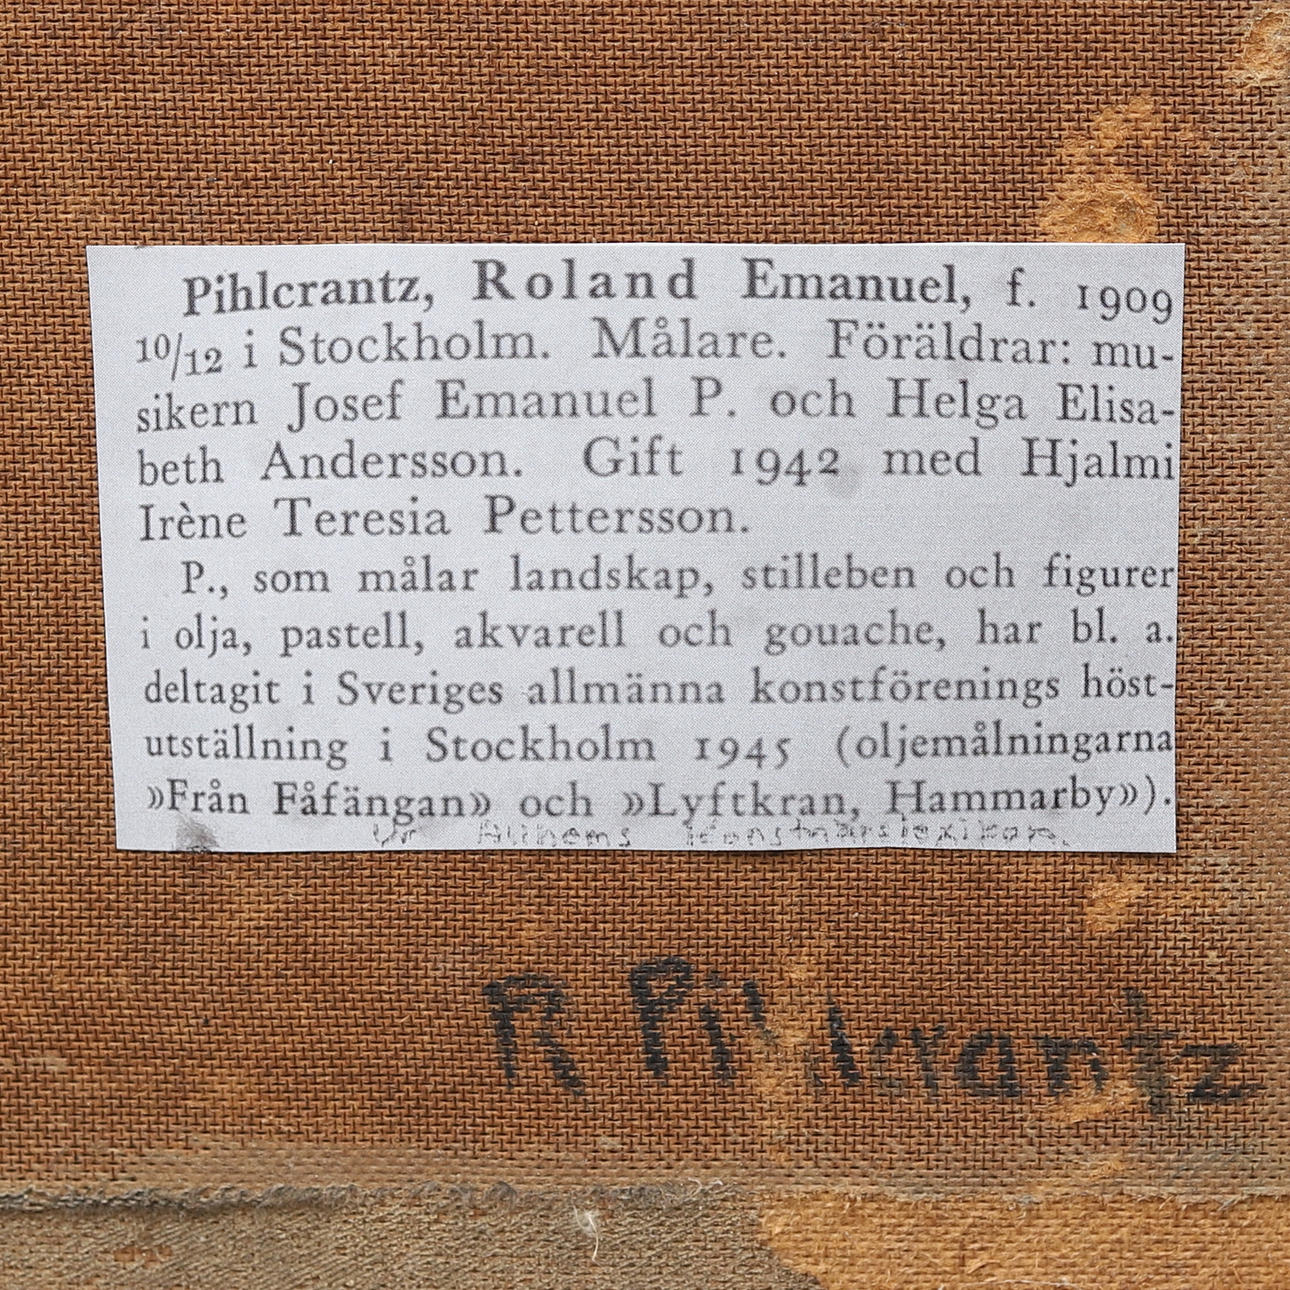 Pihlcrantz, Roland Emanuel, f. 1909
10/12 i Stockholm. Målare. Föräldrar: mu-
sikern Josef Emanuel P. och Helga Elisa-
beth Andersson. Gift 1942 med Hjalmi
Irène Teresia Pettersson.
P., som målar landskap, stilleben och figurer
i olja, pastell, akvarell och gouache, har bl. a.
deltagit i Sveriges allmänna konstförenings höst-
utställning i Stockholm 1945 (oljemålningarna
»Från Fåfängan» och »Lyftkran, Hammarby»).
Ur Allhems Konstnärslexikon.
R Pihlcrantz